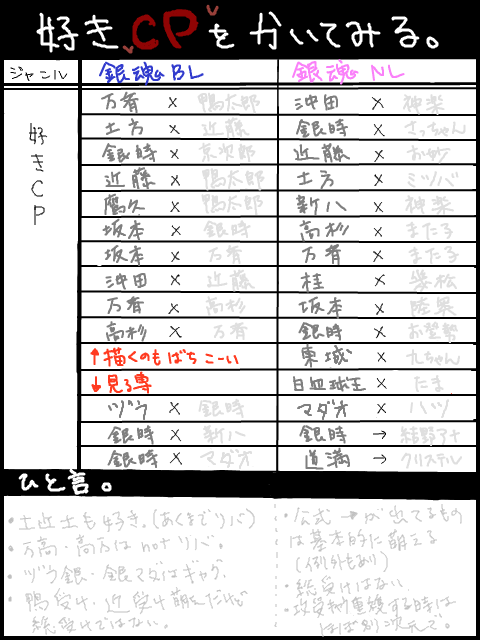 好きCPをかいてみる。
ジャンル 銀魂 BL 銀魂 NL
好きCP
万斉 × 鴨太郎 沖田 × 神楽
土方 × 近藤 銀時 × さっちゃん
銀時 × 京次郎 近藤 × お妙
近藤 × 鴨太郎 土方 × ミツバ
鷹久 × 鴨太郎 新八 × 神楽
坂本 × 銀時 高杉 × また子
坂本 × 万斉 万斉 × また子
沖田 × 近藤 桂 × 幾松
万斉 × 高杉 坂本 × 陸奥
高杉 × 万斉 銀時 × お登勢
↑描くのもばちこーい 東城 × 九ちゃん
↓見る専 白血球王 × たま
ヅラ × 銀時 マダオ × ハツ
銀時 × 新八 銀時 → 結野アナ
銀時 × マダオ 道満 → クリステル
ひと言。
・土近土も好き。(あくまでリバ)
・万高・高万はnotリバ。
・ヅラ銀・銀マダはギャグ。
・鴨受け・近受け萌えだけど
総受けではない。
・公式→が出てるもの
は基本的に萌える
(例外もあり)
・総受けはない
・攻受が重複する時は
ほぼ別次元で。